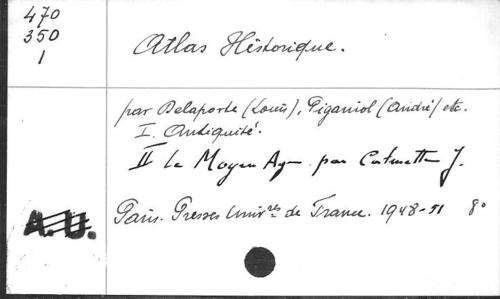 470
350
1
Atlas Historique.
par Delaporte (Louis), Piganiol (André) etc.
I. Antiquité.
II Le Moyen Age par Calmette J.
Paris. Presses Univ.res de France. 1948-51 8°
A.U.